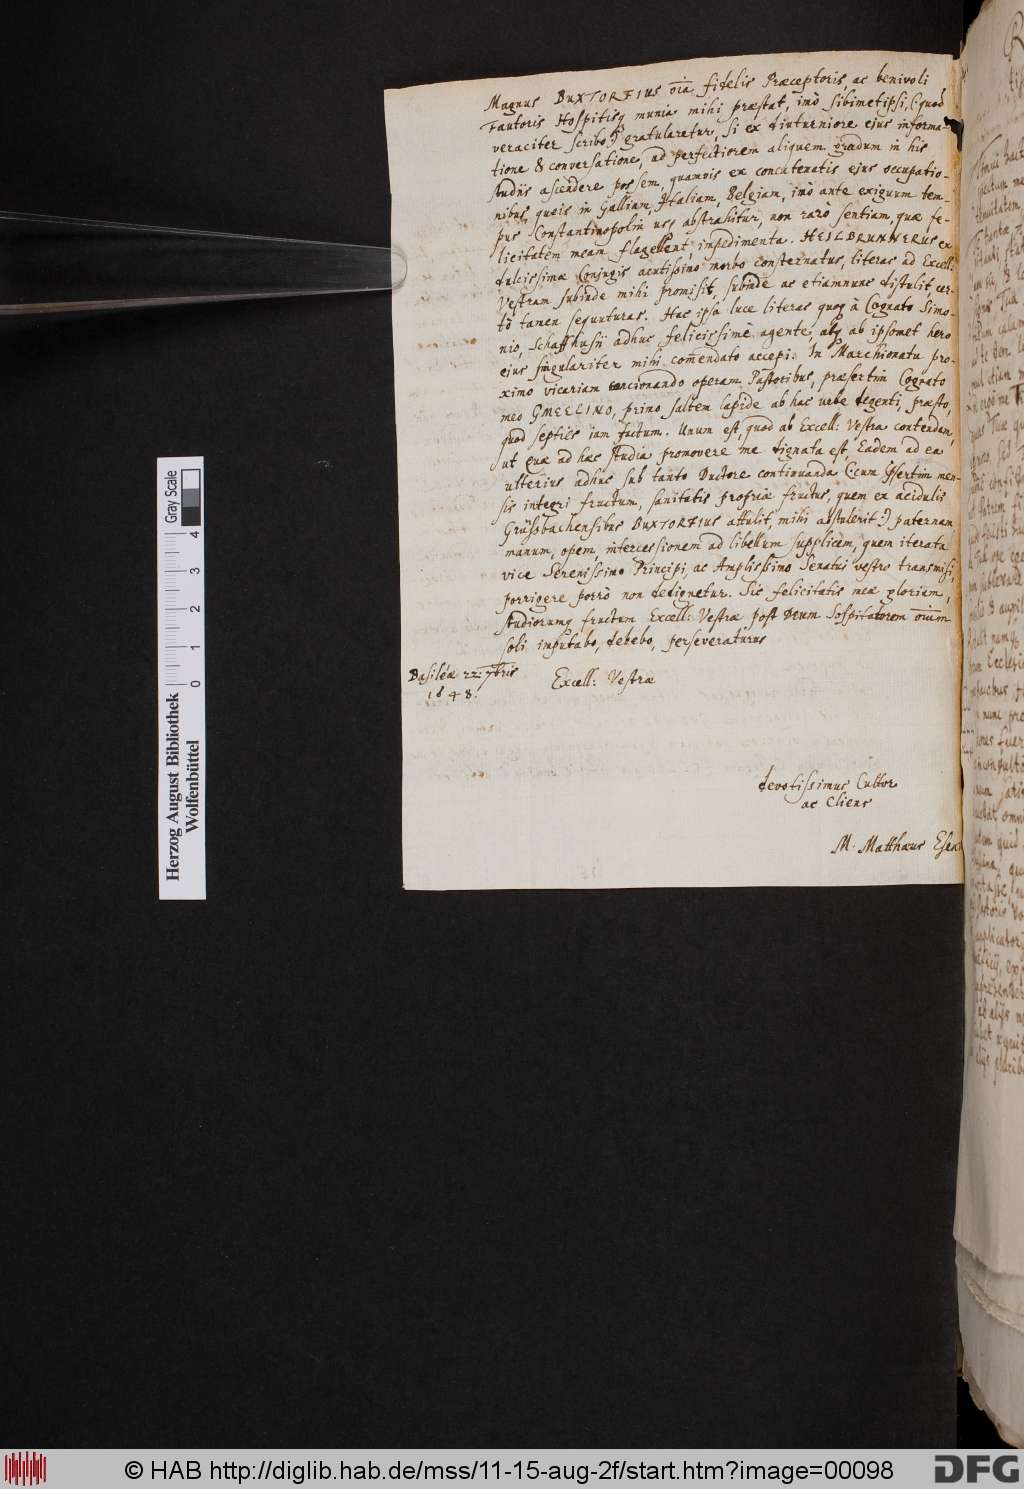 Magnus BUXTORFIUS oīa fidelis Præceptoris, ac benivoli
Fautoris Hospitisq munia mihi præstat, imò sibimetipsi, (:quod
veraciter scribo:) gratularetur, si ex diuturniore ejus informa-
tione & conversatione, ad perfectiorem aliquem gradum in his
studiis ascendere possem, quamvis ex concatenatis ejus occupatio-
nibus, queis in Galliam, Italiam, Belgiam, imò ante exiguum tem-
pus Constantinopolin usq abstrahitur, non rarò sentiam, quæ fe-
licitatem meam flagellent, impedimenta. HEILBRUNNERUS ex
dulcissimæ Conjugis acutissimo morbo consternatus, literas ad Excell:
Vestram subinde mihi promisit, subinde ac etiamnunc distulit, cer-
tò tamen sequuturas. Hac ipsa luce literas quoq à Cognato Simo-
nio, Schaffhusii adhuc felicissimè agente, atq ab ipsomet hero
ejus singulariter mihi com̄endato accepi: In Marchionatu pro-
ximo vicariam concionando operam Pastoribus, præsertim Cognato
meo GMELINO, primo saltem lapide ab hac urbe degenti, præsto,
quod septies iam factum. Unum est, quod ab Excell: Vestra contendam,
ut quæ ad hæc studia promovere me dignata est, Eadem ad ea
ulterius adhuc sub tanto Ductore continuanda (:cum men-
sis integri fructum, sanitatis propriæ fructus, quem ex acidulis
Grüssbachensibus BUXTORFIUS attulit, mihi abstulerit:) paternam
manum, opem, intercessionem ad libellum supplicem, quem iterata
vice Serenissimo Principi, ac Amplissimo Senatui vestro transmisi,
porrigere porrò non dedignetur. Sic felicitatis meæ gloriam,
studiorumq fructum Excell: Vestræ post Deum Sospitatorem oīum
soli imputabo, debebo, perseveraturus
Basileæ 22. 7bris
1648.
Excell: Vestræ
devotissimus Cultor
ac Cliens
M. Matthæus
Herzog August Bibliothek
Wolfenbüttel
0 1 2 3 4
Gray Scale
© HAB http://diglib.hab.de/mss/11-15-aug-2f/start.htm?image=00098
DFG